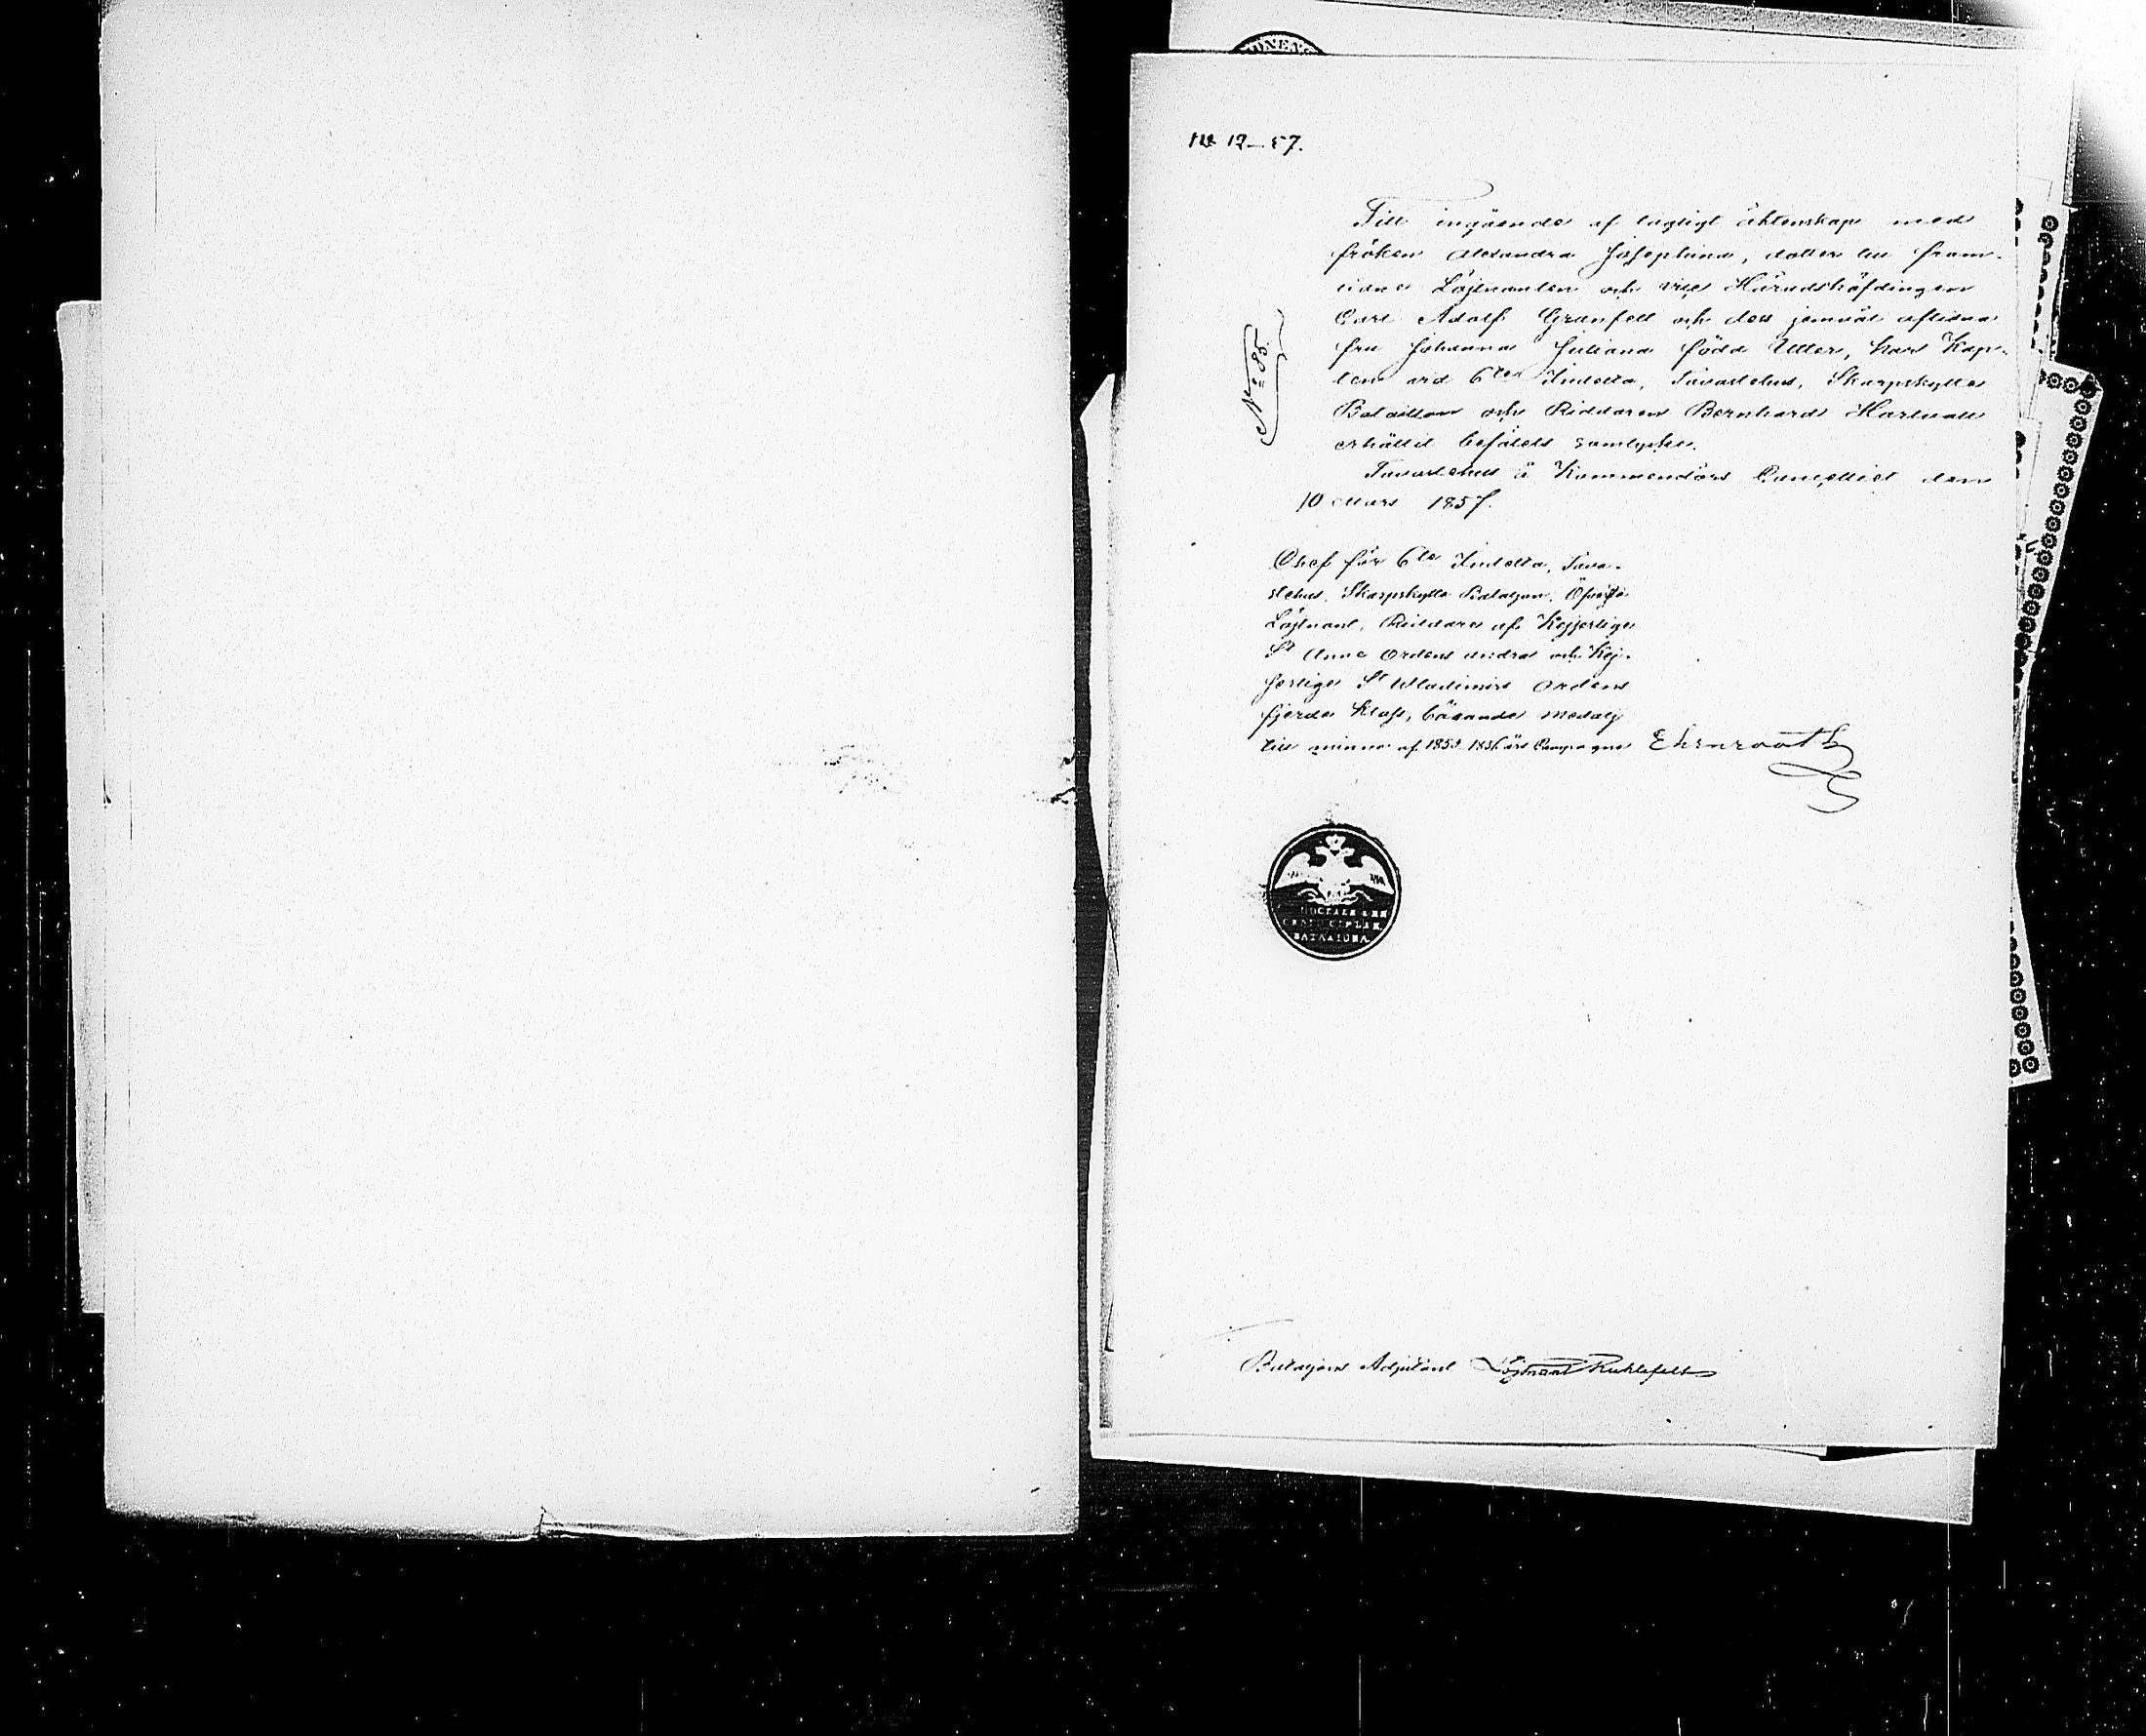 № 12–57.
Till ingående af lagligt äktenskap med
fröken Alexandra Josephina, dotter till fram-
lidne Löjtnanten och vice Häradshöfdingen
Carl Adolf Granfelt och dess jemväl aflidna
fru Johanna Juliana född Utter, har Kap-
ten vid 6te Indelta, Tavastehus, Skarpskytte
Bataillon och Riddaren Bernhard Hartwall
erhållit befälets samtycke.
Tavastehus å Kommendörs Cancelliet den
10 Mars 1857.
№ 85.
Chef för 6te Indelta, Tava-
stehus, Skarpskytte Bataljon, Öfverste
Löjtnant, Riddare af Kejserliga
St Anne Ordens andra och Kej-
serliga St Wladimirs Ordens
fjerde Klass, bärande medalj
till minne af 1853-1856 års Campagne Ehrnrooth
БАТАЛІОНА
Bataljons Adjutant Löjtnant